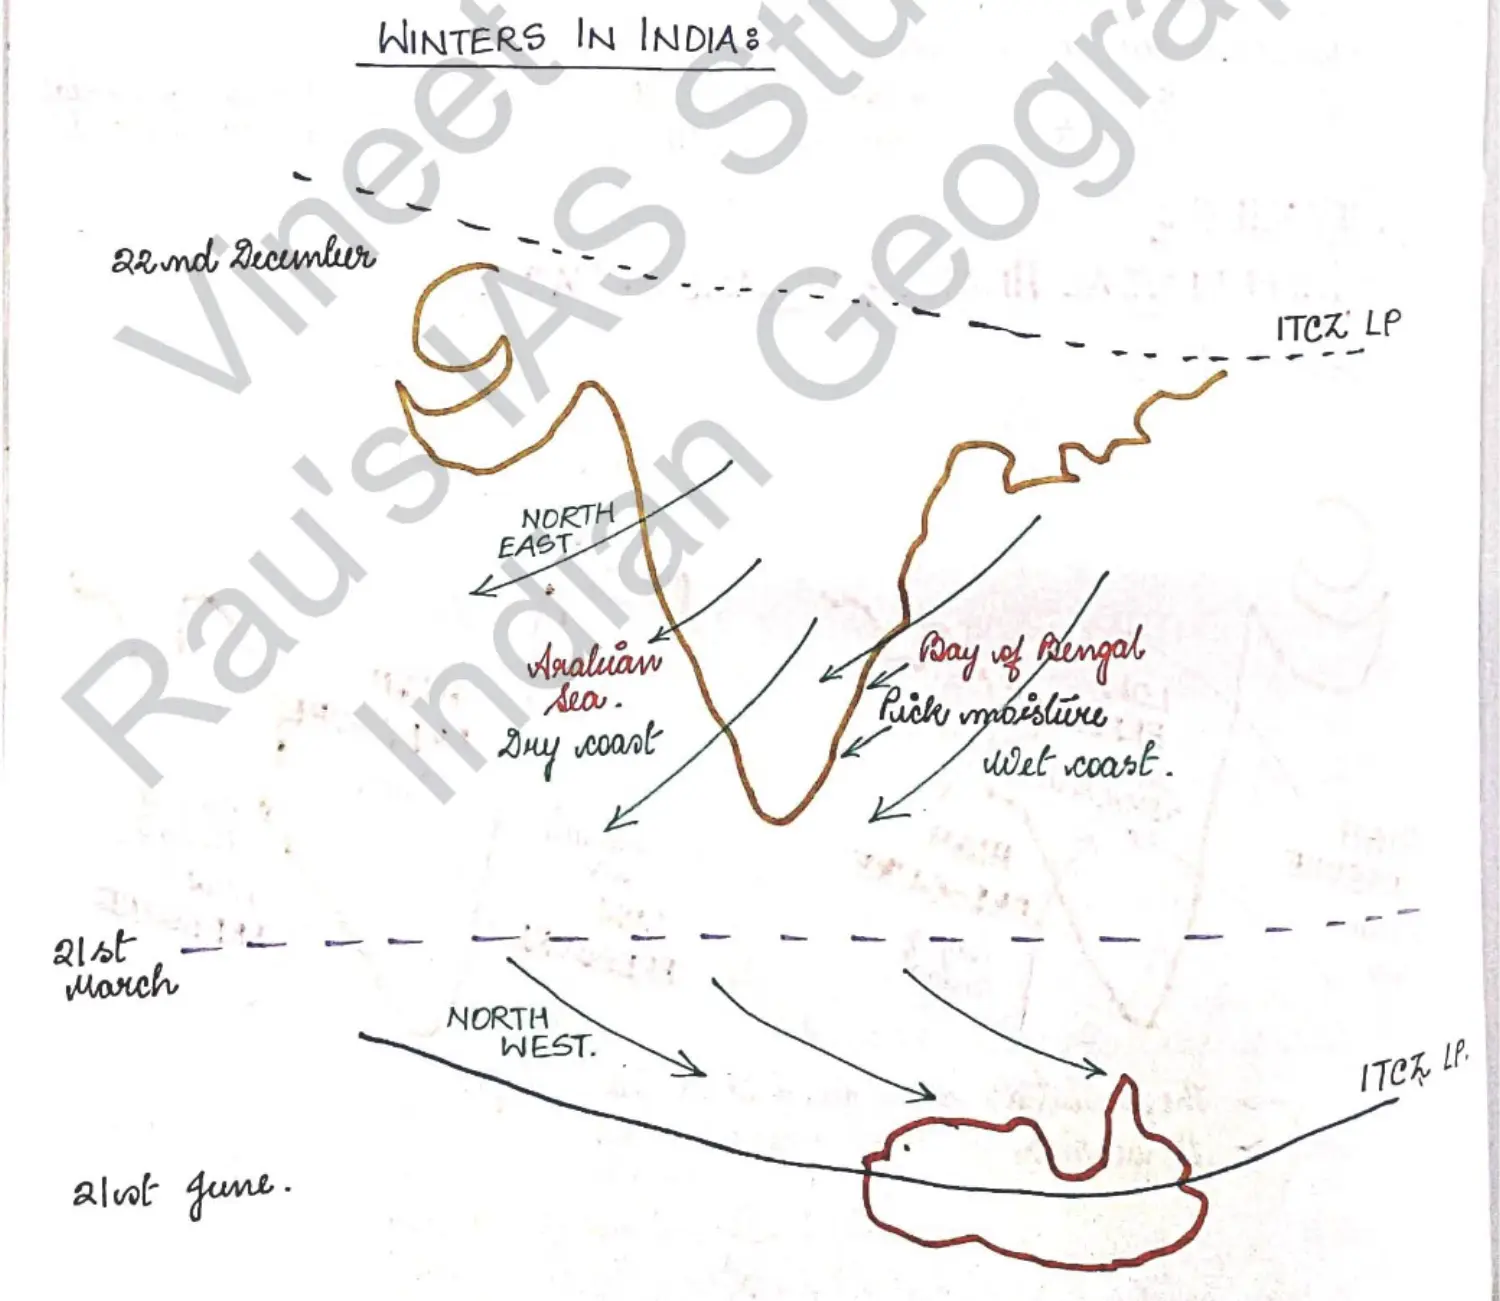 WINTERS IN INDIA:
22nd December
ITCZ LP
NORTH
EAST
Arabian
Sea.
Dry coast
Bay of Bengal
Pick moisture
Wet coast.
21st
March
NORTH
WEST.
ITCZ LP.
21st June.
Vineet
Rau's IAS Stu
Indian Geogra